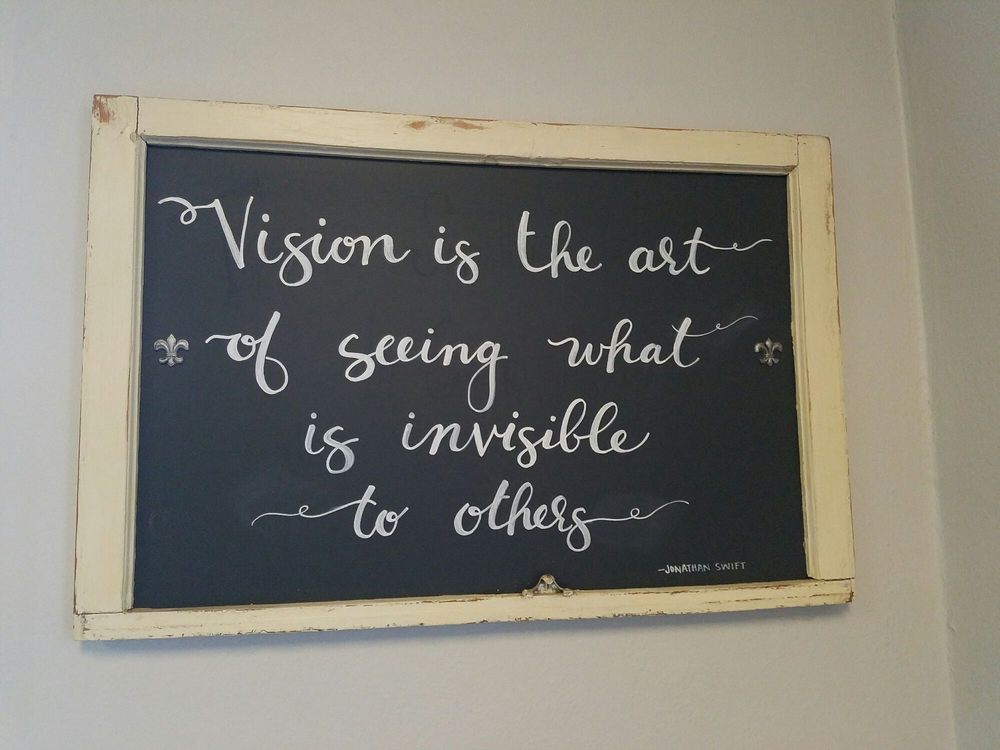 Vision is the art
of seeing what
is invisible
to others
-JONATHAN SWIFT